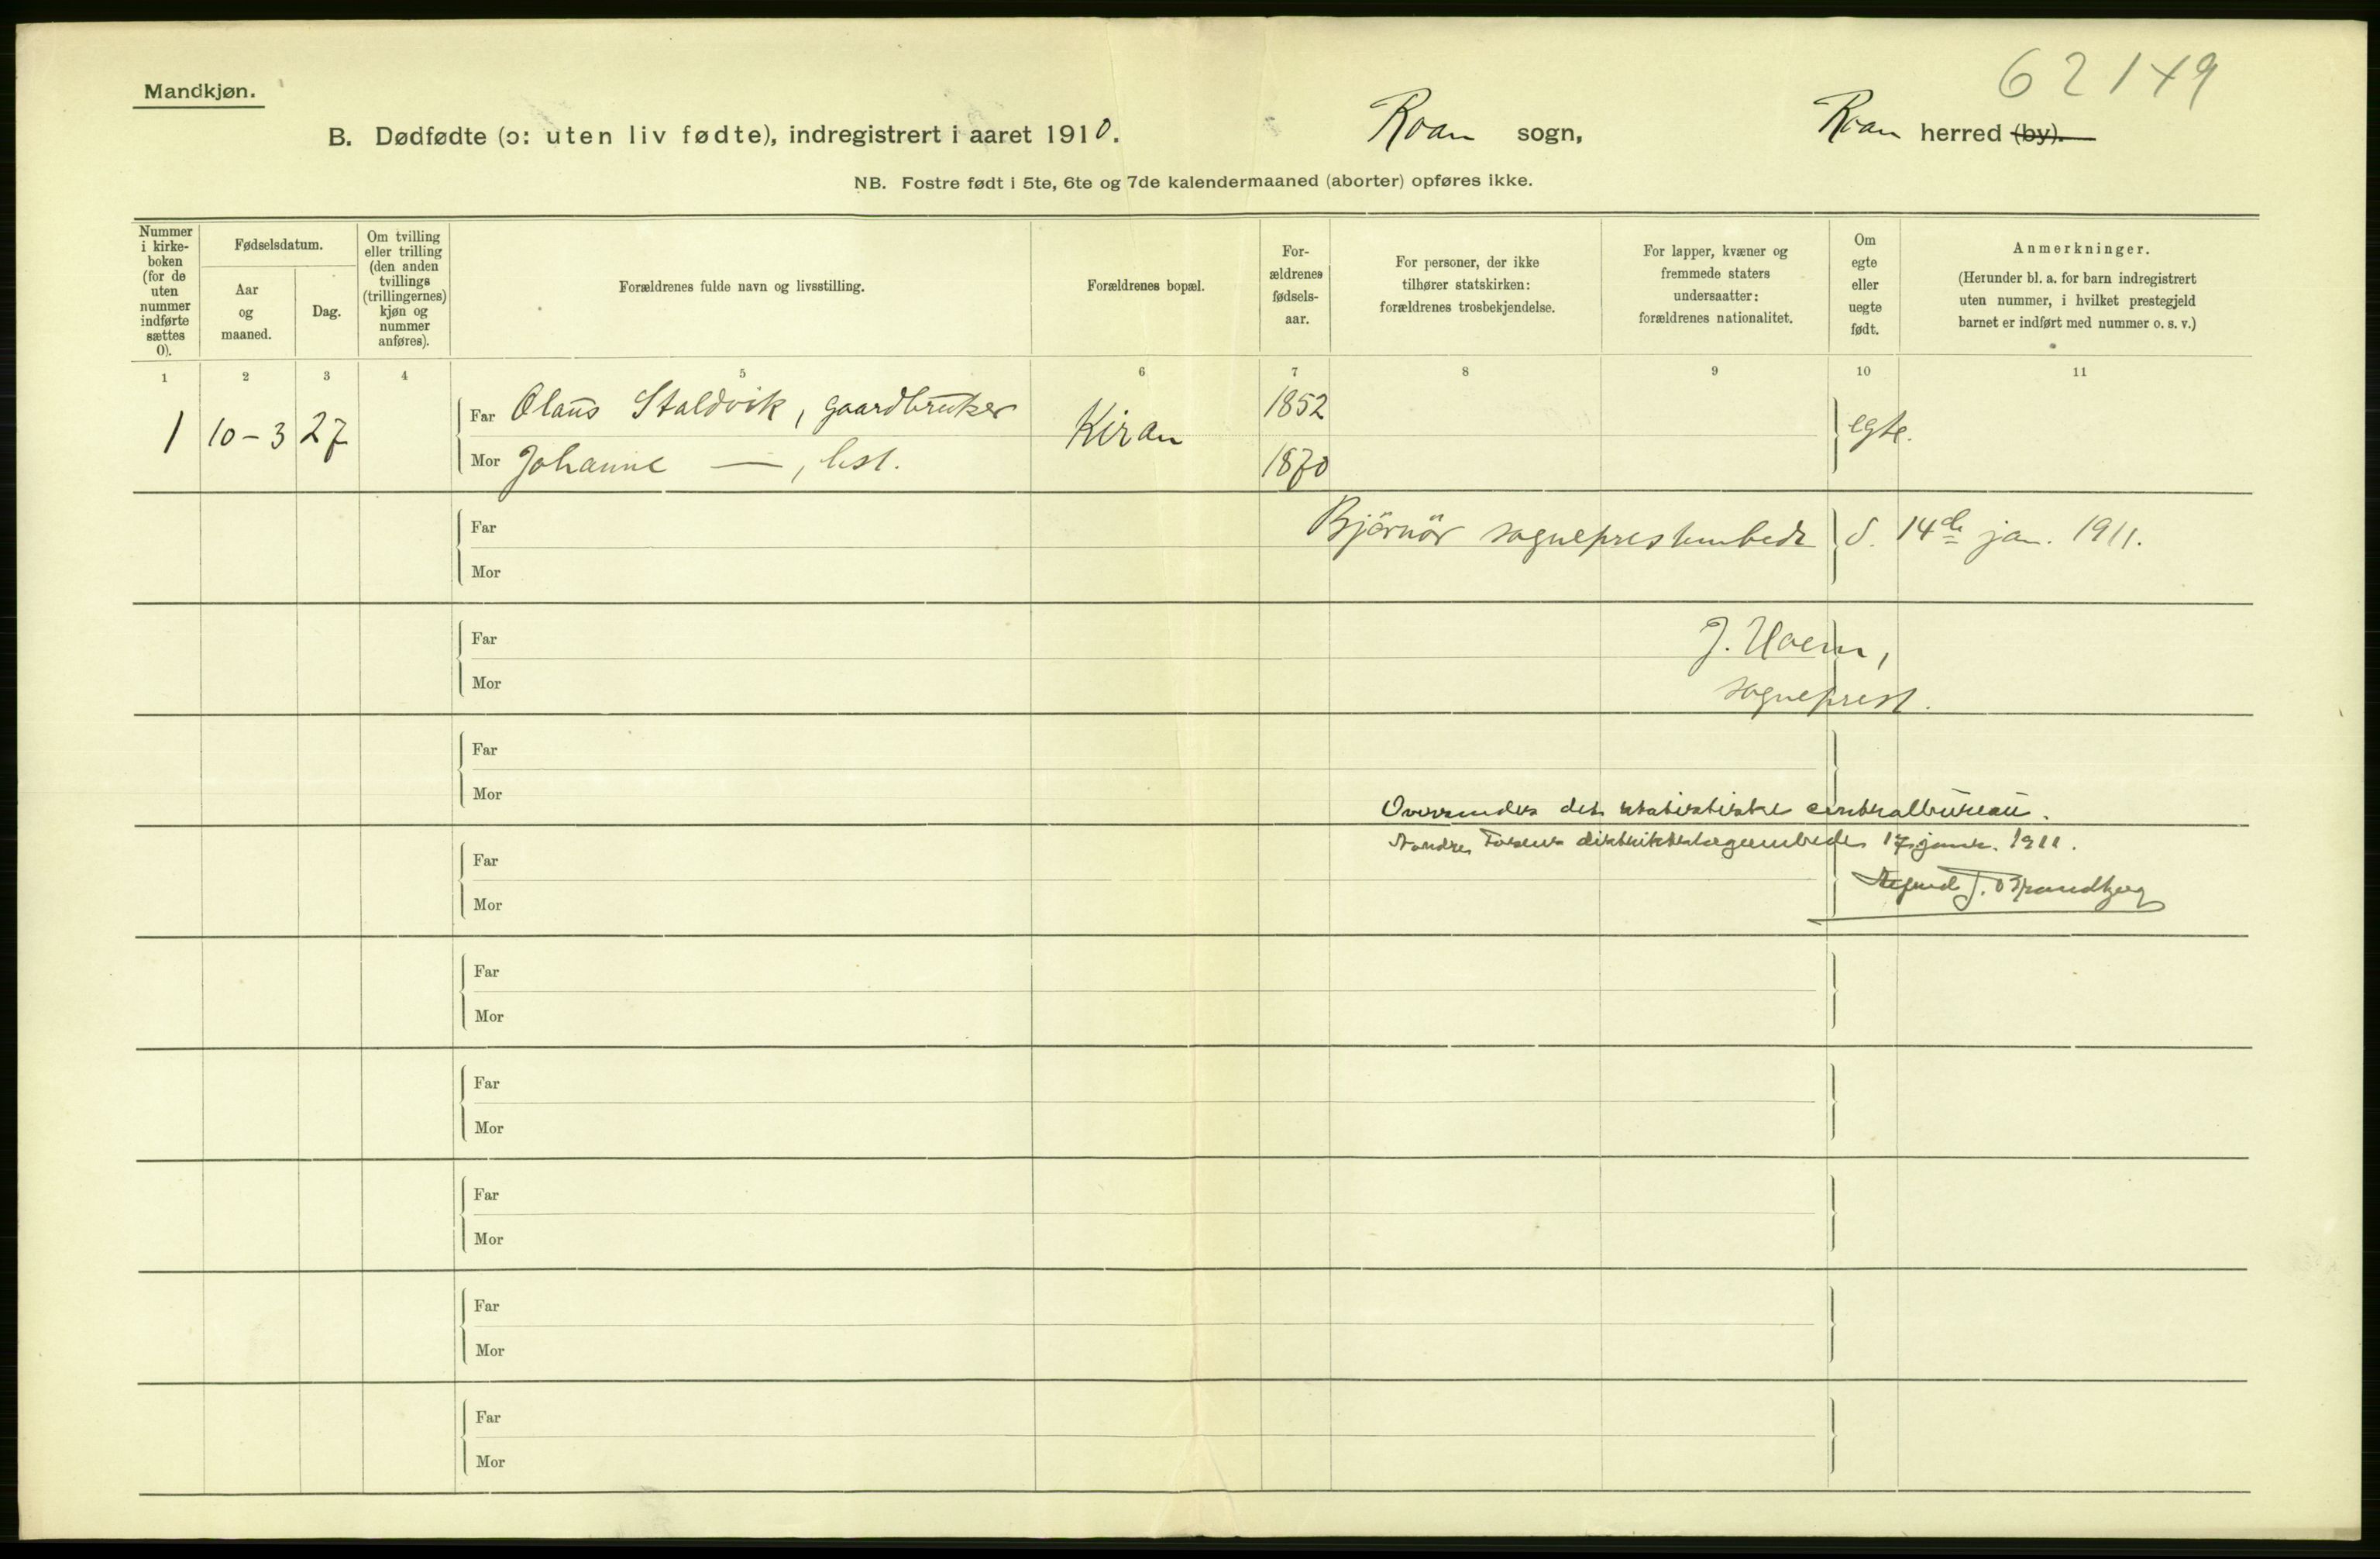 62149
Mandkjøn.
B. Dødfødte (ɔ: uten liv fødte), indregistrert i aaret 1910. Roan sogn, Roan herred (by).
NB. Fostre født i 5te, 6te og 7de kalendermaaned (aborter) opføres ikke.
Nummer i kirke-boken (for de uten nummer indførte sættes 0).
Fødselsdatum.
Aar og maaned.
Dag.
Om tvilling eller trilling (den anden tvillings (trillingernes) kjøn og nummer anføres).
Forældrenes fulde navn og livsstilling.
Forældrenes bopæl.
For-ældrenes fødsels-aar.
For personer, der ikke tilhører statskirken: forældrenes trosbekjendelse.
For lapper, kvæner og fremmede staters undersaatter: forældrenes nationalitet.
Om egte eller uegte født.
Anmerkninger.
(Herunder bl. a. for barn indregistrert uten nummer, i hvilket prestegjeld barnet er indført med nummer o. s. v.)
1 2 3 4 5 6 7 8 9 10 11
1 10-3 27 Far Olaus Staldvik, gaardbruker Kiran 1852 egte.
Mor Johanne — , hst. 1870
Far Bjørnör sogneprestembede d. 14de jan. 1911.
Mor
Far J. Hoem,
Mor sogneprest.
Far
Mor
Oversendes det statistiske centralbureau.
Far Nordre Fosens distriktslægeembede 17 januar 1911.
Mor
Far
Mor
Far
Mor
Far
Mor
Far
Mor
Far
Mor